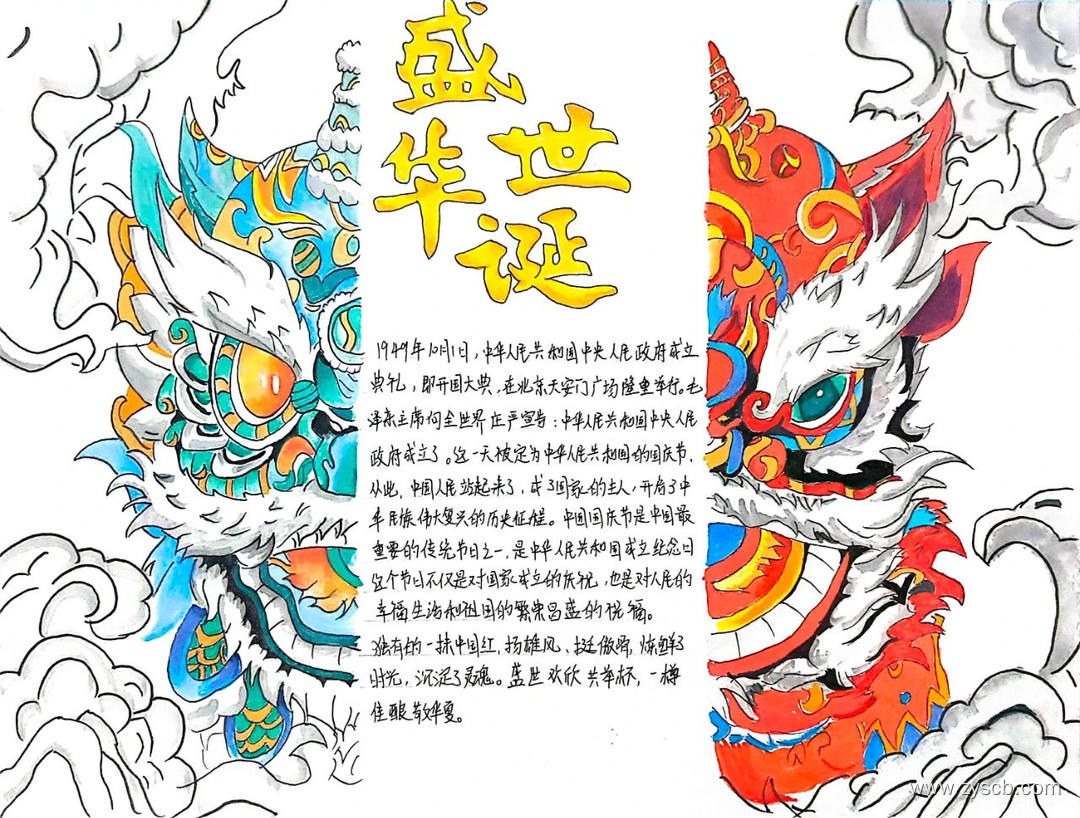 盛世
华诞
1949年10月1日，中华人民共和国中央人民政府成立
典礼，即开国大典，在北京天安门广场隆重举行。毛
泽东主席向全世界庄严宣告：中华人民共和国中央人民
政府成立了。这一天被定为中华人民共和国的国庆节。
从此，中国人民站起来了，成了国家的主人，开启了中
华民族伟大复兴的历史征程。中国国庆节是中国最
重要的传统节日之一，是中华人民共和国成立纪念日
这个节日不仅是对国家成立的庆祝，也是对人民的
幸福生活和祖国的繁荣昌盛的祝福。
独有的一抹中国红，扬雄风、挺傲骨，炼鲜了
时光，沉淀了灵魂。盛世欢欣共举杯，一樽
佳酿敬华夏。
www.zyscb.com